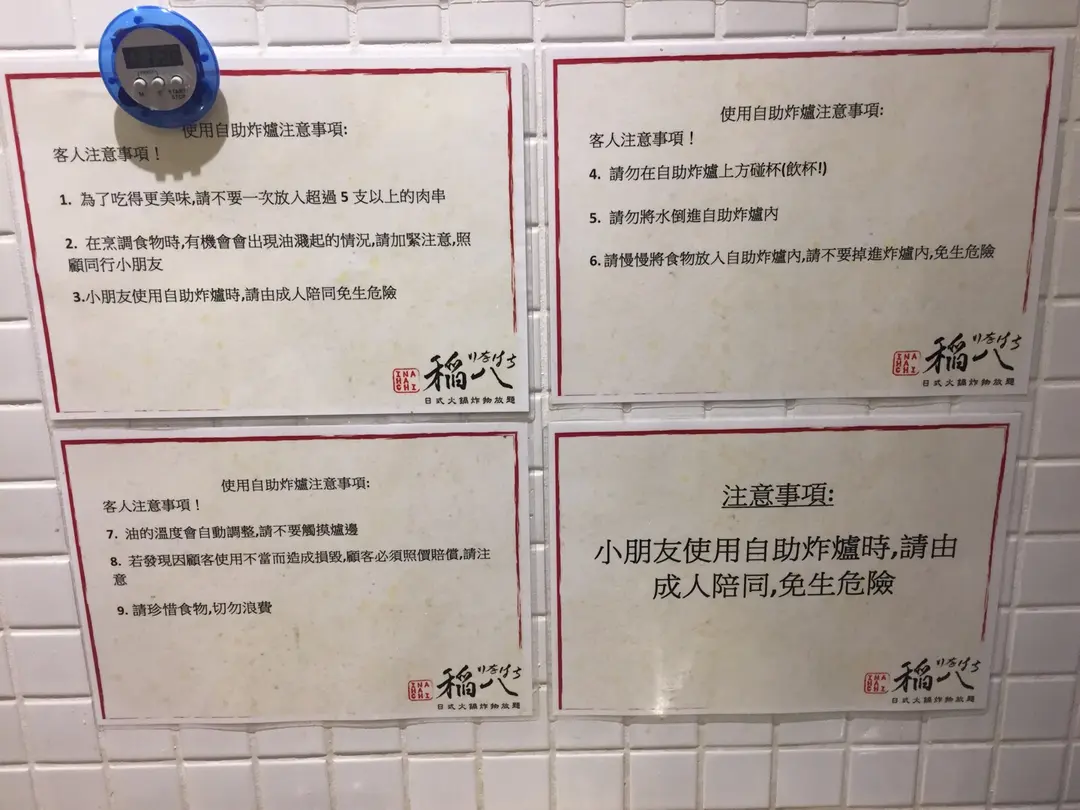 使用自助炸爐注意事項:
客人注意事項！
1. 為了吃得更美味,請不要一次放入超過 5 支以上的肉串
2. 在烹調食物時,有機會會出現油濺起的情況,請加緊注意,照
顧同行小朋友
3.小朋友使用自助炸爐時,請由成人陪同免生危險
INAHACHI
稻八
日式火鍋炸物放題
使用自助炸爐注意事項:
客人注意事項！
4. 請勿在自助炸爐上方碰杯(飲杯!)
5. 請勿將水倒進自助炸爐內
6.請慢慢將食物放入自助炸爐內,請不要掉進炸爐內,免生危險
INAHACHI
稻八
日式火鍋炸物放題
使用自助炸爐注意事項:
客人注意事項！
7. 油的溫度會自動調整,請不要觸摸爐邊
8. 若發現因顧客使用不當而造成損毀,顧客必須照價賠償,請注
意
9. 請珍惜食物,切勿浪費
INAHACHI
稻八
日式火鍋炸物放題
注意事項:
小朋友使用自助炸爐時,請由
成人陪同,免生危險
INAHACHI
稻八
日式火鍋炸物放題